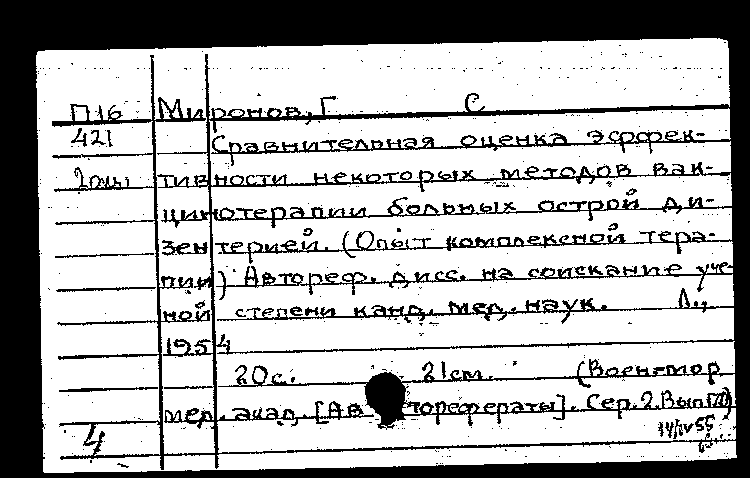 П16 Миронов, Г. С
421 Сравнительная оценка эффек-
тивности некоторых методов вак-
цинотерапии больных острой ди-
зентерией. (Опыт комплексной тера-
пии) Автореф. дисс. на соискание уче-
ной степени канд. мед. наук. Л.,
1954
20с. 21см. (Воен-мор
мед. акад. [Авторефераты]. Сер. 2. Вып.
14/IV 55
4